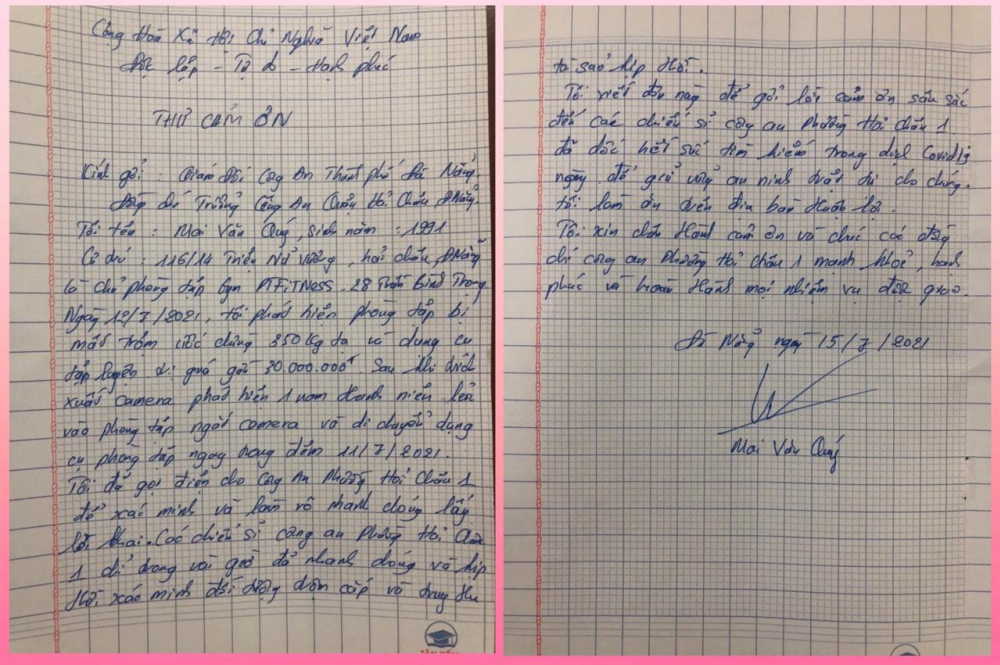 Cộng Hoà Xã Hội Chủ Nghĩa Việt Nam
Độc lập - Tự do - Hạnh phúc
THƯ CẢM ƠN
Kính gởi : Giám Đốc Công An Thành phố Đà Nẵng.
Đồng chí Trưởng Công An Quận Hải Châu ĐNẵng.
Tôi tên : Mai Văn Quý, sinh năm : 1991
Cư trú : 116/14 Triệu Nữ Vương, hải châu ĐNẵng
là chủ phòng tập gym PTFITNESS - 28 Trần Bình Trọng
Ngày 12/7/2021, tôi phát hiện phòng tập bị
mất trộm ước chừng 350kg tạ và dụng cụ
tập luyện trị giá gần 30.000.000đ. Sau khi trích
xuất camera phát hiện 1 nam thanh niên lẻn
vào phòng tập ngắt camera và di chuyển dụng
cụ phòng tập ngay trong đêm 11/7/2021.
Tôi đã gọi điện cho Công An Phường Hải Châu 1
để xác minh và làm rõ nhanh chóng lấy
lời khai. Các chiến sĩ công an Phường Hải Châu
1 chỉ trong vài giờ đã nhanh chóng và kịp
thời xác minh đối tượng trộm cắp và truy thu
tài sản kịp thời.
Tôi viết đơn này để gởi lời cảm ơn sâu sắc
đến các chiến sĩ công an Phường Hải Châu 1
đã dốc hết sức trong dịch Covid19
ngay để giữ vững an ninh trật tự cho chúng
tôi làm ăn trên địa bàn thuận lợi.
Tôi xin chân thành cảm ơn và chúc các đồng
chí công an Phường Hải Châu 1 mạnh khoẻ, hạnh
phúc và hoàn thành mọi nhiệm vụ được giao.
Đà Nẵng ngày 15/7/2021
Mai Văn Quý